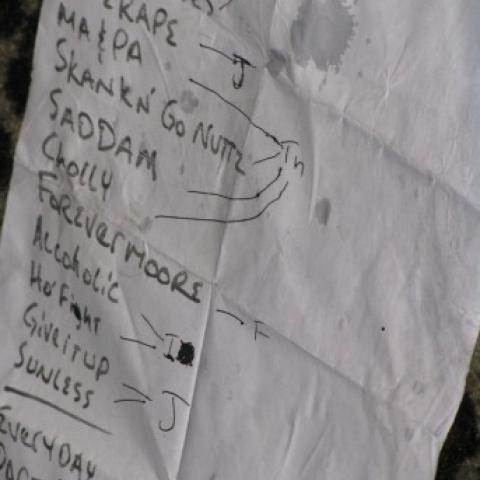 MA & PA
J
SKANK N' GO NUTTZ
SADDAM
Th
CHOLLY
FOREVERMOORE
F
Alcoholic
Ho Fight
I
GIVEITUP
SUNLESS
J
EVERYDAY